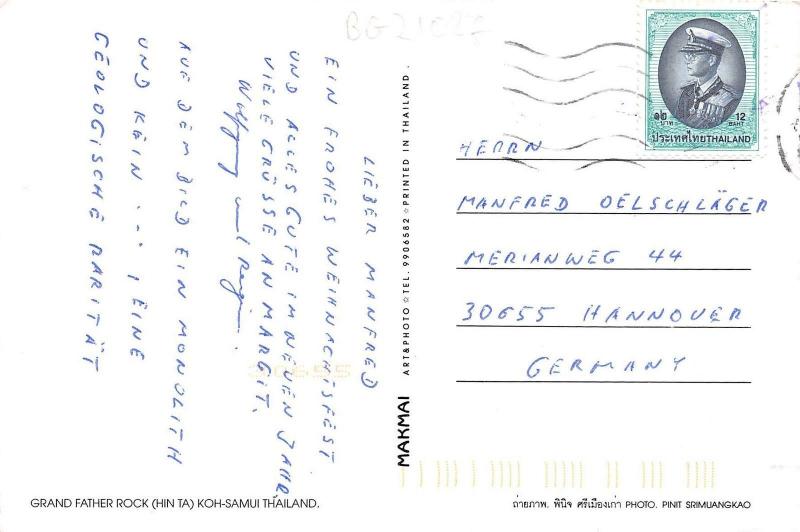 BG21027
LIEBER MANFRED
EIN FROHES WEIHNACHTSFEST
UND ALLES GUTE IM NEUEN JAHR
VIELE GRÜSSE AN MARGIT.
Wolfgang und
AUF DEM BILD EIN MONOLITH
UND KEIN ... , EINE
GEOLOGISCHE RARITÄT
๑๒ 12
บาท BAHT
ประเทศไทย THAILAND
HERRN
MANFRED OELSCHLÄGER
MERIANWEG 44
30655 HANNOVER
GERMANY
30655
MAKMAI ART&PHOTO ☆ TEL. 9906582 ☆ PRINTED IN THAILAND.
GRAND FATHER ROCK (HIN TA) KOH-SAMUI THAILAND.
ถ่ายภาพ. พินิจ ศรีเมืองเก่า PHOTO. PINIT SRIMUANGKAO